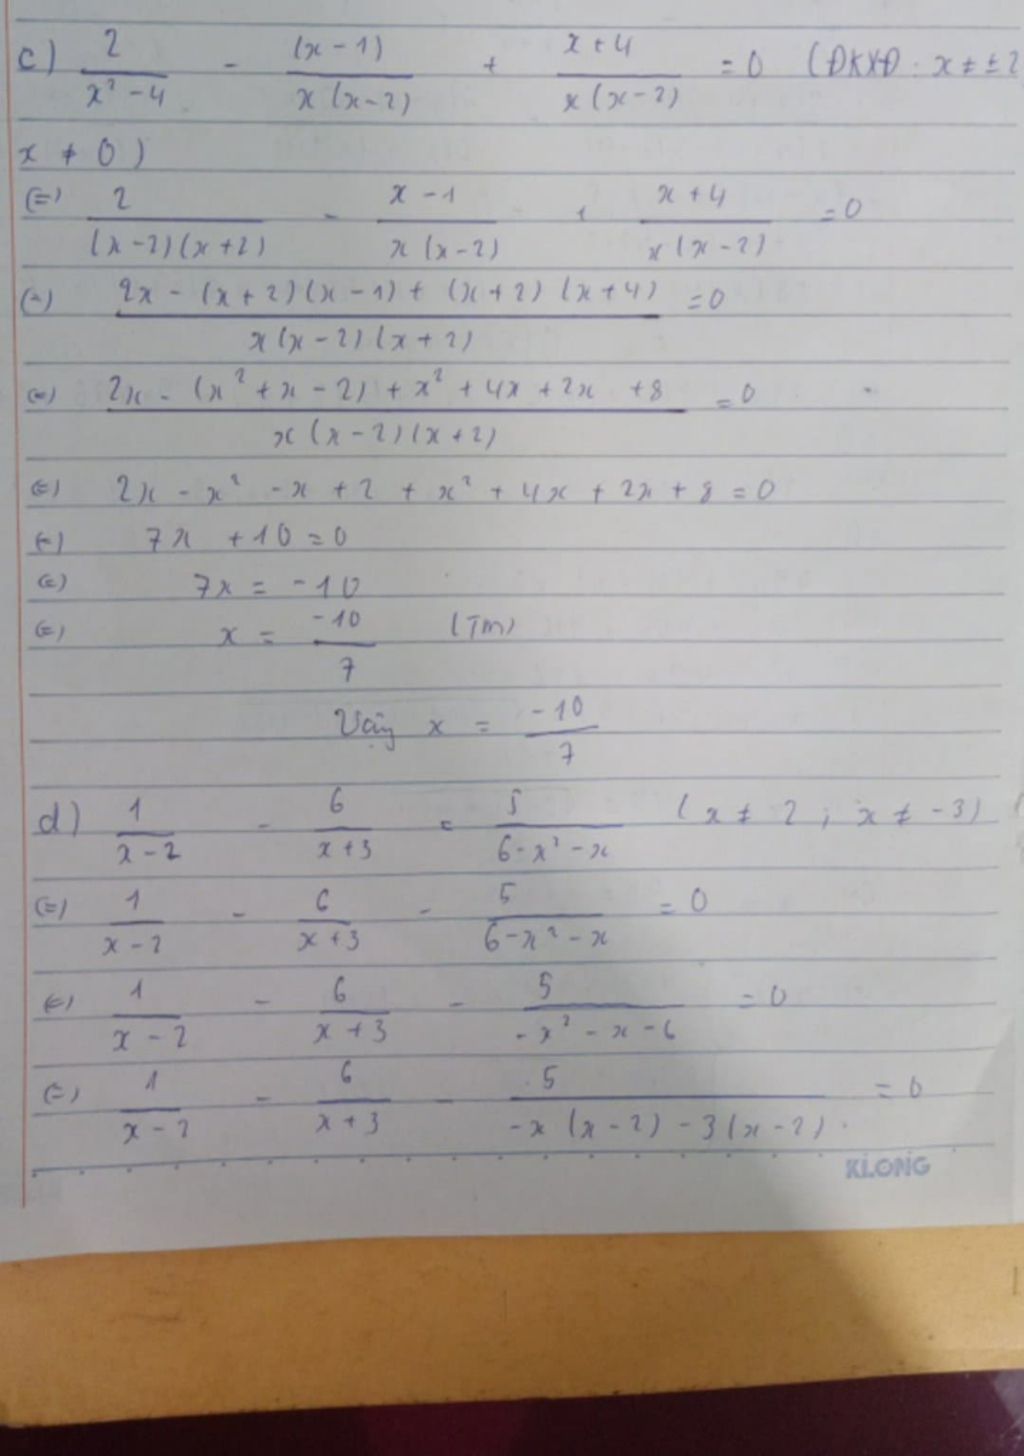 c) 2/(x² - 4) - (x - 1)/(x(x - 2)) + (x + 4)/(x(x - 2)) = 0 (ĐKXĐ: x ≠ ± 2
x ≠ 0)
(=) 2/((x - 2)(x + 2)) - (x - 1)/(x(x - 2)) + (x + 4)/(x(x - 2)) = 0
(=) (2x - (x + 2)(x - 1) + (x + 2)(x + 4))/(x(x - 2)(x + 2)) = 0
(=) (2x - (x² + x - 2) + x² + 4x + 2x + 8)/(x(x - 2)(x + 2)) = 0
(=) 2x - x² - x + 2 + x² + 4x + 2x + 8 = 0
(=) 7x + 10 = 0
(=) 7x = -10
(=) x = -10/7 (Tm)
Vậy x = -10/7
d) 1/(x - 2) - 6/(x + 3) = 5/(6 - x² - x) (x ≠ 2; x ≠ -3)
(=) 1/(x - 2) - 6/(x + 3) - 5/(6 - x² - x) = 0
(=) 1/(x - 2) - 6/(x + 3) - 5/(-x² - x - 6) = 0
(=) 1/(x - 2) - 6/(x + 3) - 5/(-x(x - 2) - 3(x - 2)) = 0
KLONG